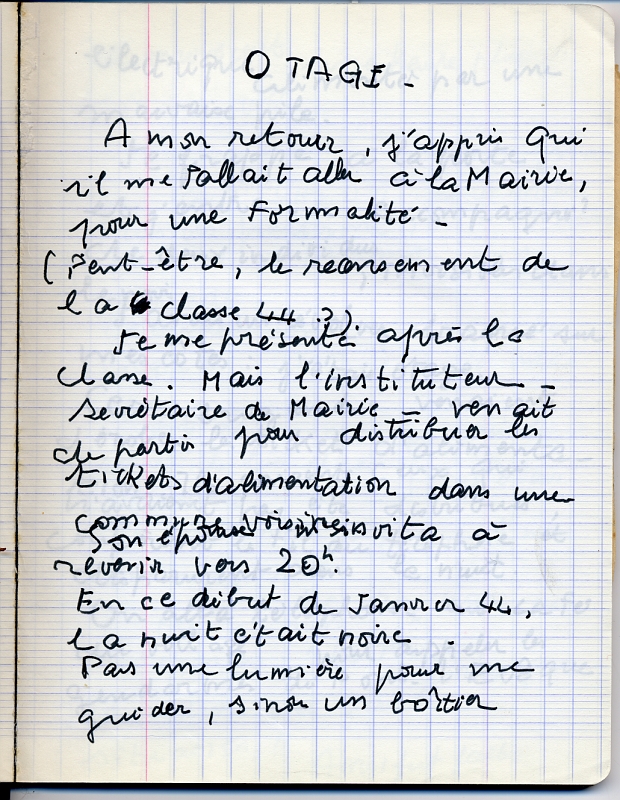 OTAGE -
A mon retour, j'appris qui
il me fallait aller à la Mairie,
pour une formalité -
(Peut-être, le recensement de
la classe 44 ?).
Je me présentai après la
classe. Mais l'instituteur -
Secrétaire de Mairie - venait
de partir pour distribuer les
tickets d'alimentation dans une
commune voisine
Son épouse m'invita à
revenir vers 20h.
En ce début de Janvier 44,
la nuit était noire.
Pas une lumière pour me
guider, sinon un boîtier